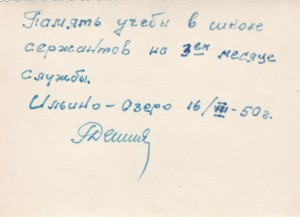 Память учебы в школе
сержантов на 3ем месяце
службы.
Ильино-Озеро 16/III-50г.